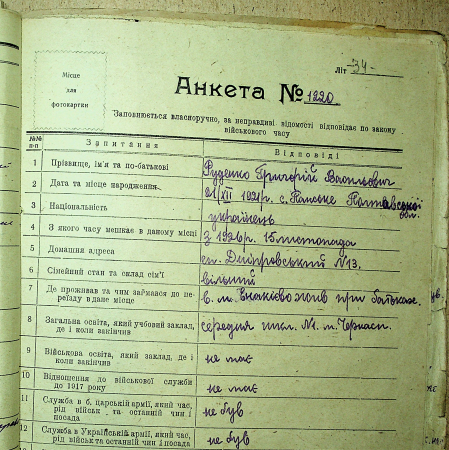 Місце
для
фотокартки
Літ -34-
Анкета № 1220
Заповнюється власноручно, за неправдиві відомості відповідає по закону
військового часу
№№ п-п Запитання Відповіді
1 Прізвище, ім'я та по-батькові Руденко Григорій Васильович
2 Дата та місце народження. 21/XII 1921р. с. Полтавської обл.
3 Національність українець
4 З якого часу мешкає в даному місці з 1926р. 15 листопада
5 Домашня адреса Дніпровський N13.
6 Сімейний стан та склад сім'ї вільний
7 Де проживав та чим займався до переїзду в дане місце в м. жив при батьках
8 Загальна освіта, який учбовий заклад, де і коли закінчив середня шк. №1. м.
9 Військова освіта, який заклад, де і коли закінчив не має
10 Відношення до військової служби до 1917 року не має
11 Служба в б. царській армії, який час, рід військ та останній чин і посада не був
12 Служба в Українській армії, який час, рід військ та останній чин і посада не був